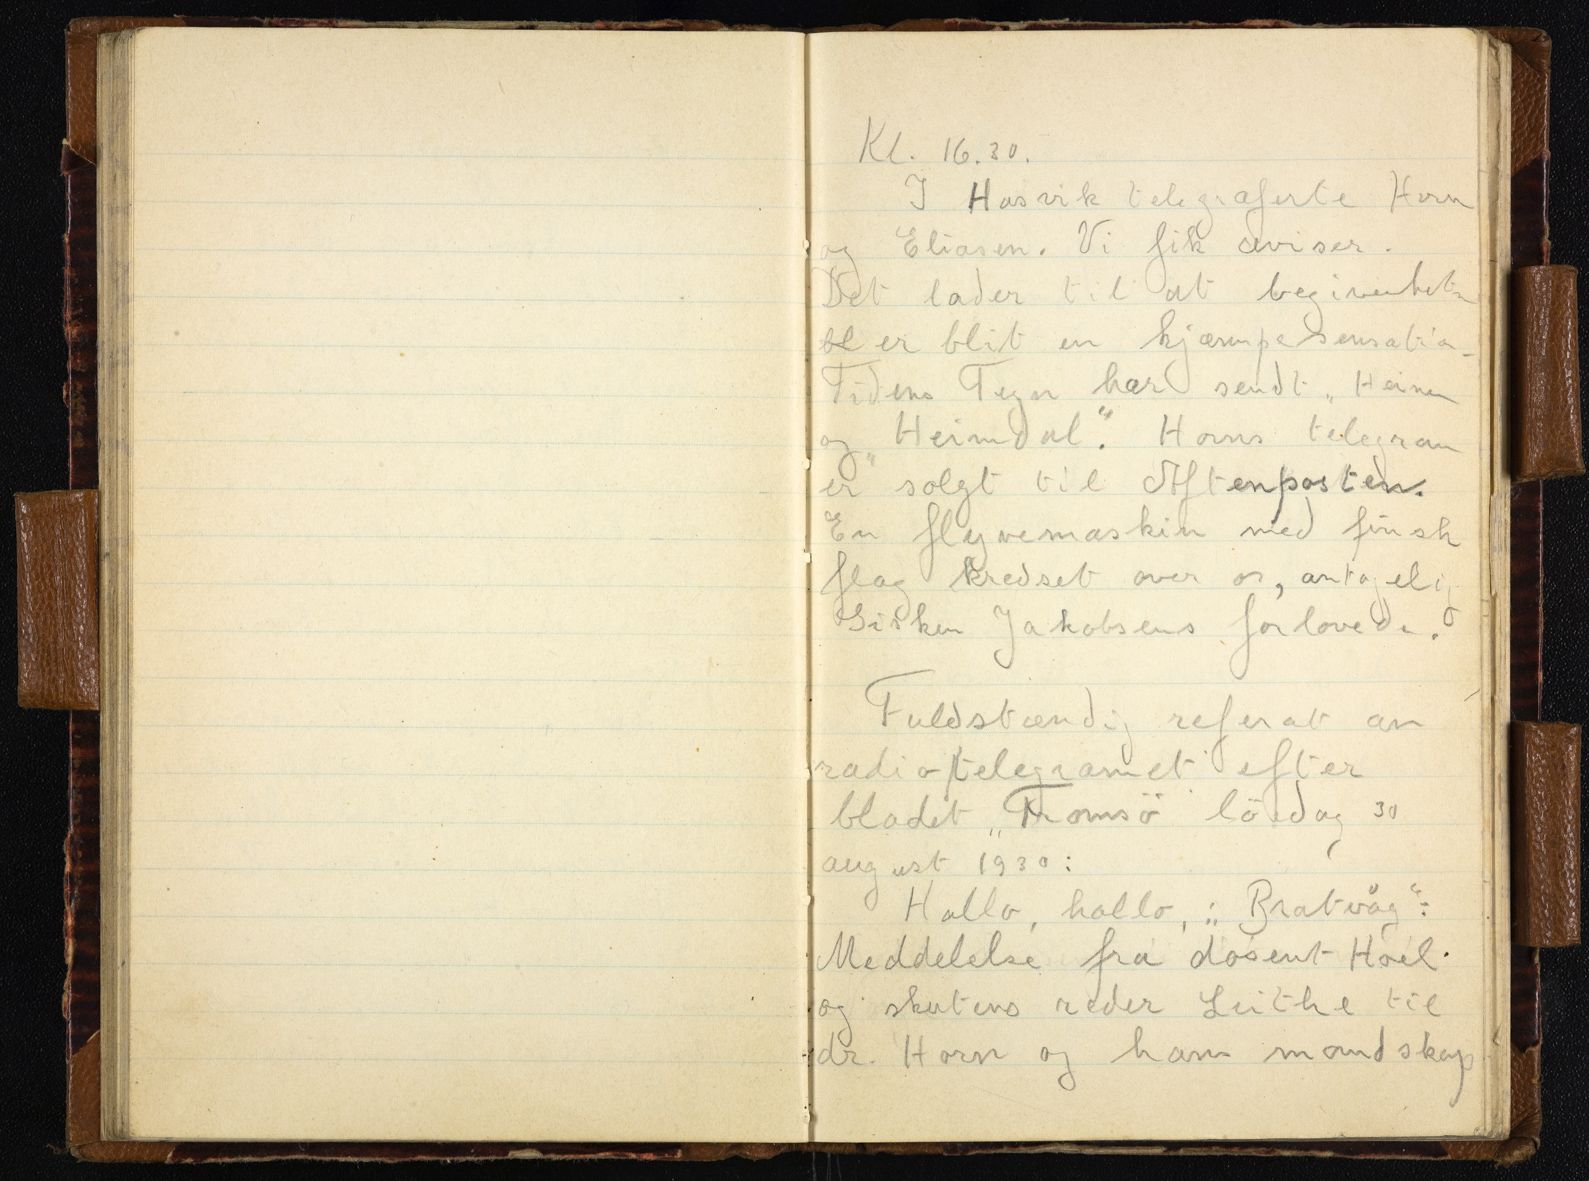 Kl. 16.30.
I Hasvik telegraferte Horn
og Eliasen. Vi fik aviser.
Det lader til at begivenhet
er blit en kjæmpesensation
Tidens Tegn har sendt „Heimen
og „Heimdal“. Horns telegram
er solgt til Aftenposten.
En flyvemaskin med finsk
flag kredset over os, antagelig
Gisken Jakobsens forlovede.
Fuldstændig referat av
radiotelegramet efter
bladet „Tromsö“ lördag 30
august 1930:
Hallo, hallo, „Bratvåg“:
Meddelelse fra dosent Hoel
og skutens reder Leithe til
dr. Horn og hans mandskap